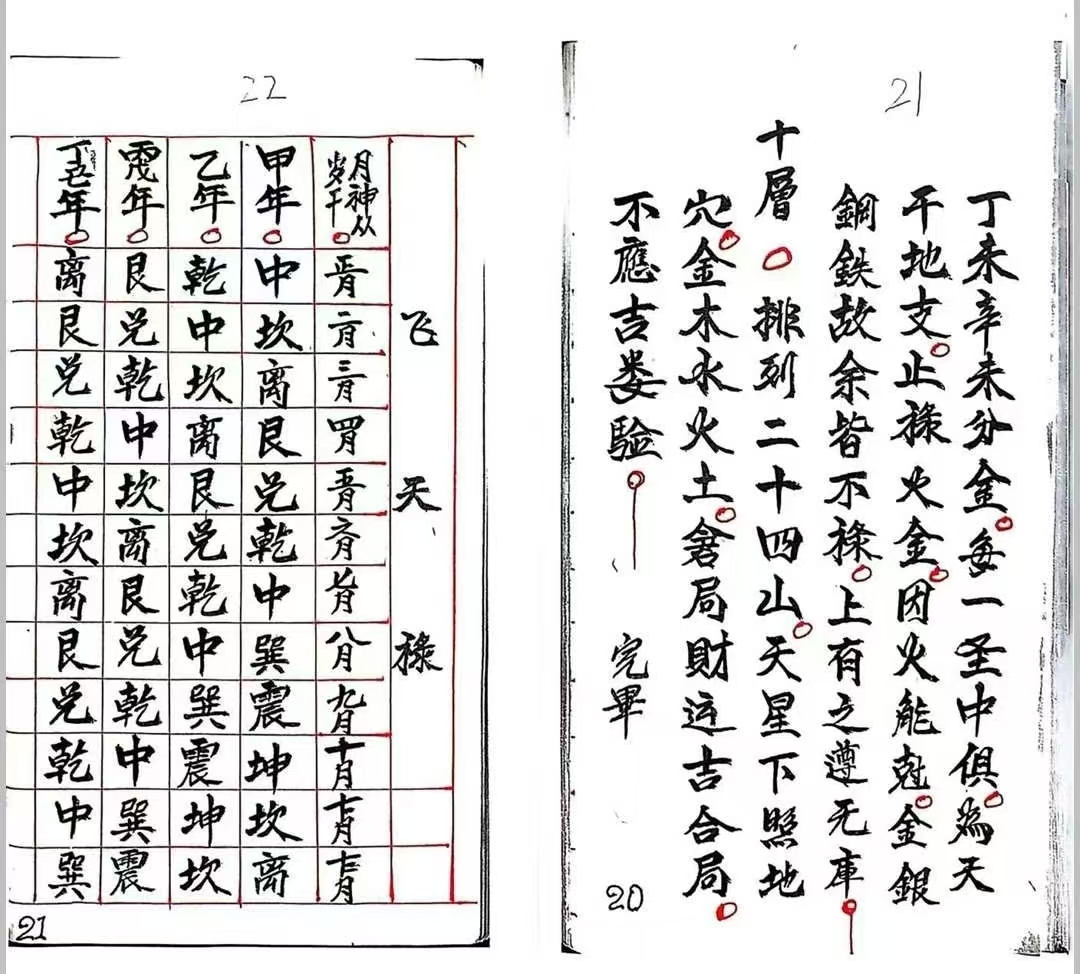 21
丁未辛未分金。每一圣中俱。為天
干地支。止祿火金。因火能尅。金銀
鋼鉄故余皆不祿。上有之遵无庫。
十層。排列二十四山。天星下照地
穴。金木水火土。窘局財运吉合局。
不應吉娄驗。 完畢
20
22
飞天祿
月神从岁干。 正月 二月 三月 四月 五月 六月 七月 八月 九月 十月 十一月 十二月
甲年。 中 坎 离 艮 兑 乾 中 巽 震 坤 坎 离
乙年。 乾 中 坎 离 艮 兑 乾 中 巽 震 坤 坎
丙戊年。 艮 兑 乾 中 坎 离 艮 兑 乾 中 巽 震
丁己年。 离 艮 兑 乾 中 坎 离 艮 兑 乾 中 巽
21